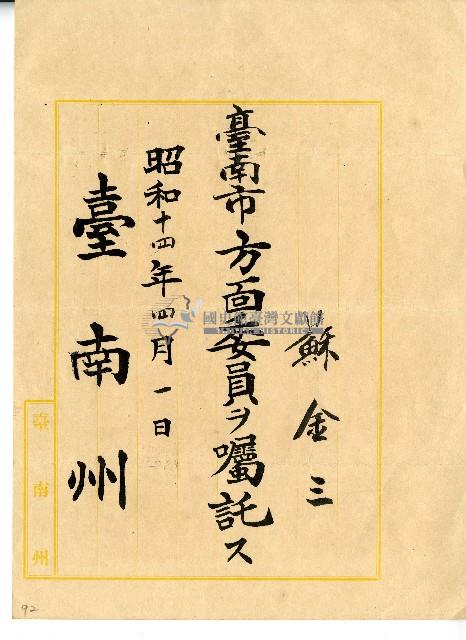 蘇金三
臺南市方面委員ヲ囑託ス
昭和十四年四月一日
臺南州
臺南州
國史館臺灣文獻館
92